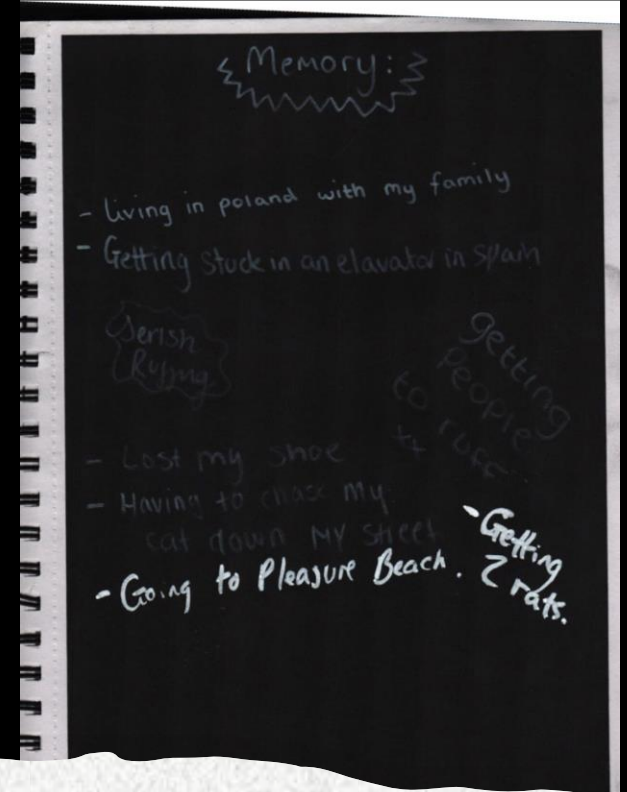 Memory:
- living in poland with my family
- Getting stuck in an elavator in Spain
getting
people
to
- Lost my shoe
- Having to chase my
cat down MY street
- Going to Pleasure Beach.
- Getting
2 rats.